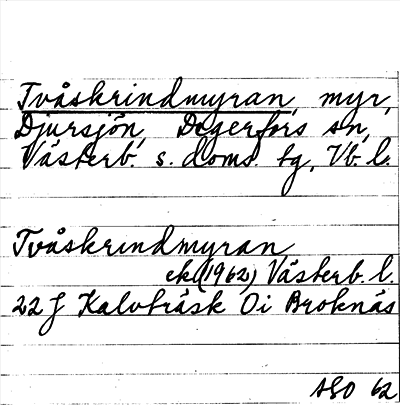 Tvåskrindmyran, myr,
Djursjön, Degerfors sn,
Västerb. s. doms. tg, Vb. l.
Tvåskrindmyran
ek (1962) Västerb. l.
22 J Kalvträsk 0i Broknäs
ASO 62